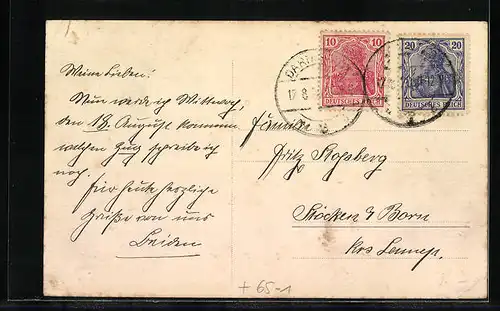 Meine Lieben!
Nun werde ich Mittwoch,
den 18. August kommen
welchen Zug schreibe ich
noch.
Für heute herzliche
Grüße von uns
Beiden
10 10
DEUTSCHES REICH
20 20
DEUTSCHES REICH
17.8.
Familie
Fritz
Stöcken b/ Born
Krs Lennep.
+ 65-1